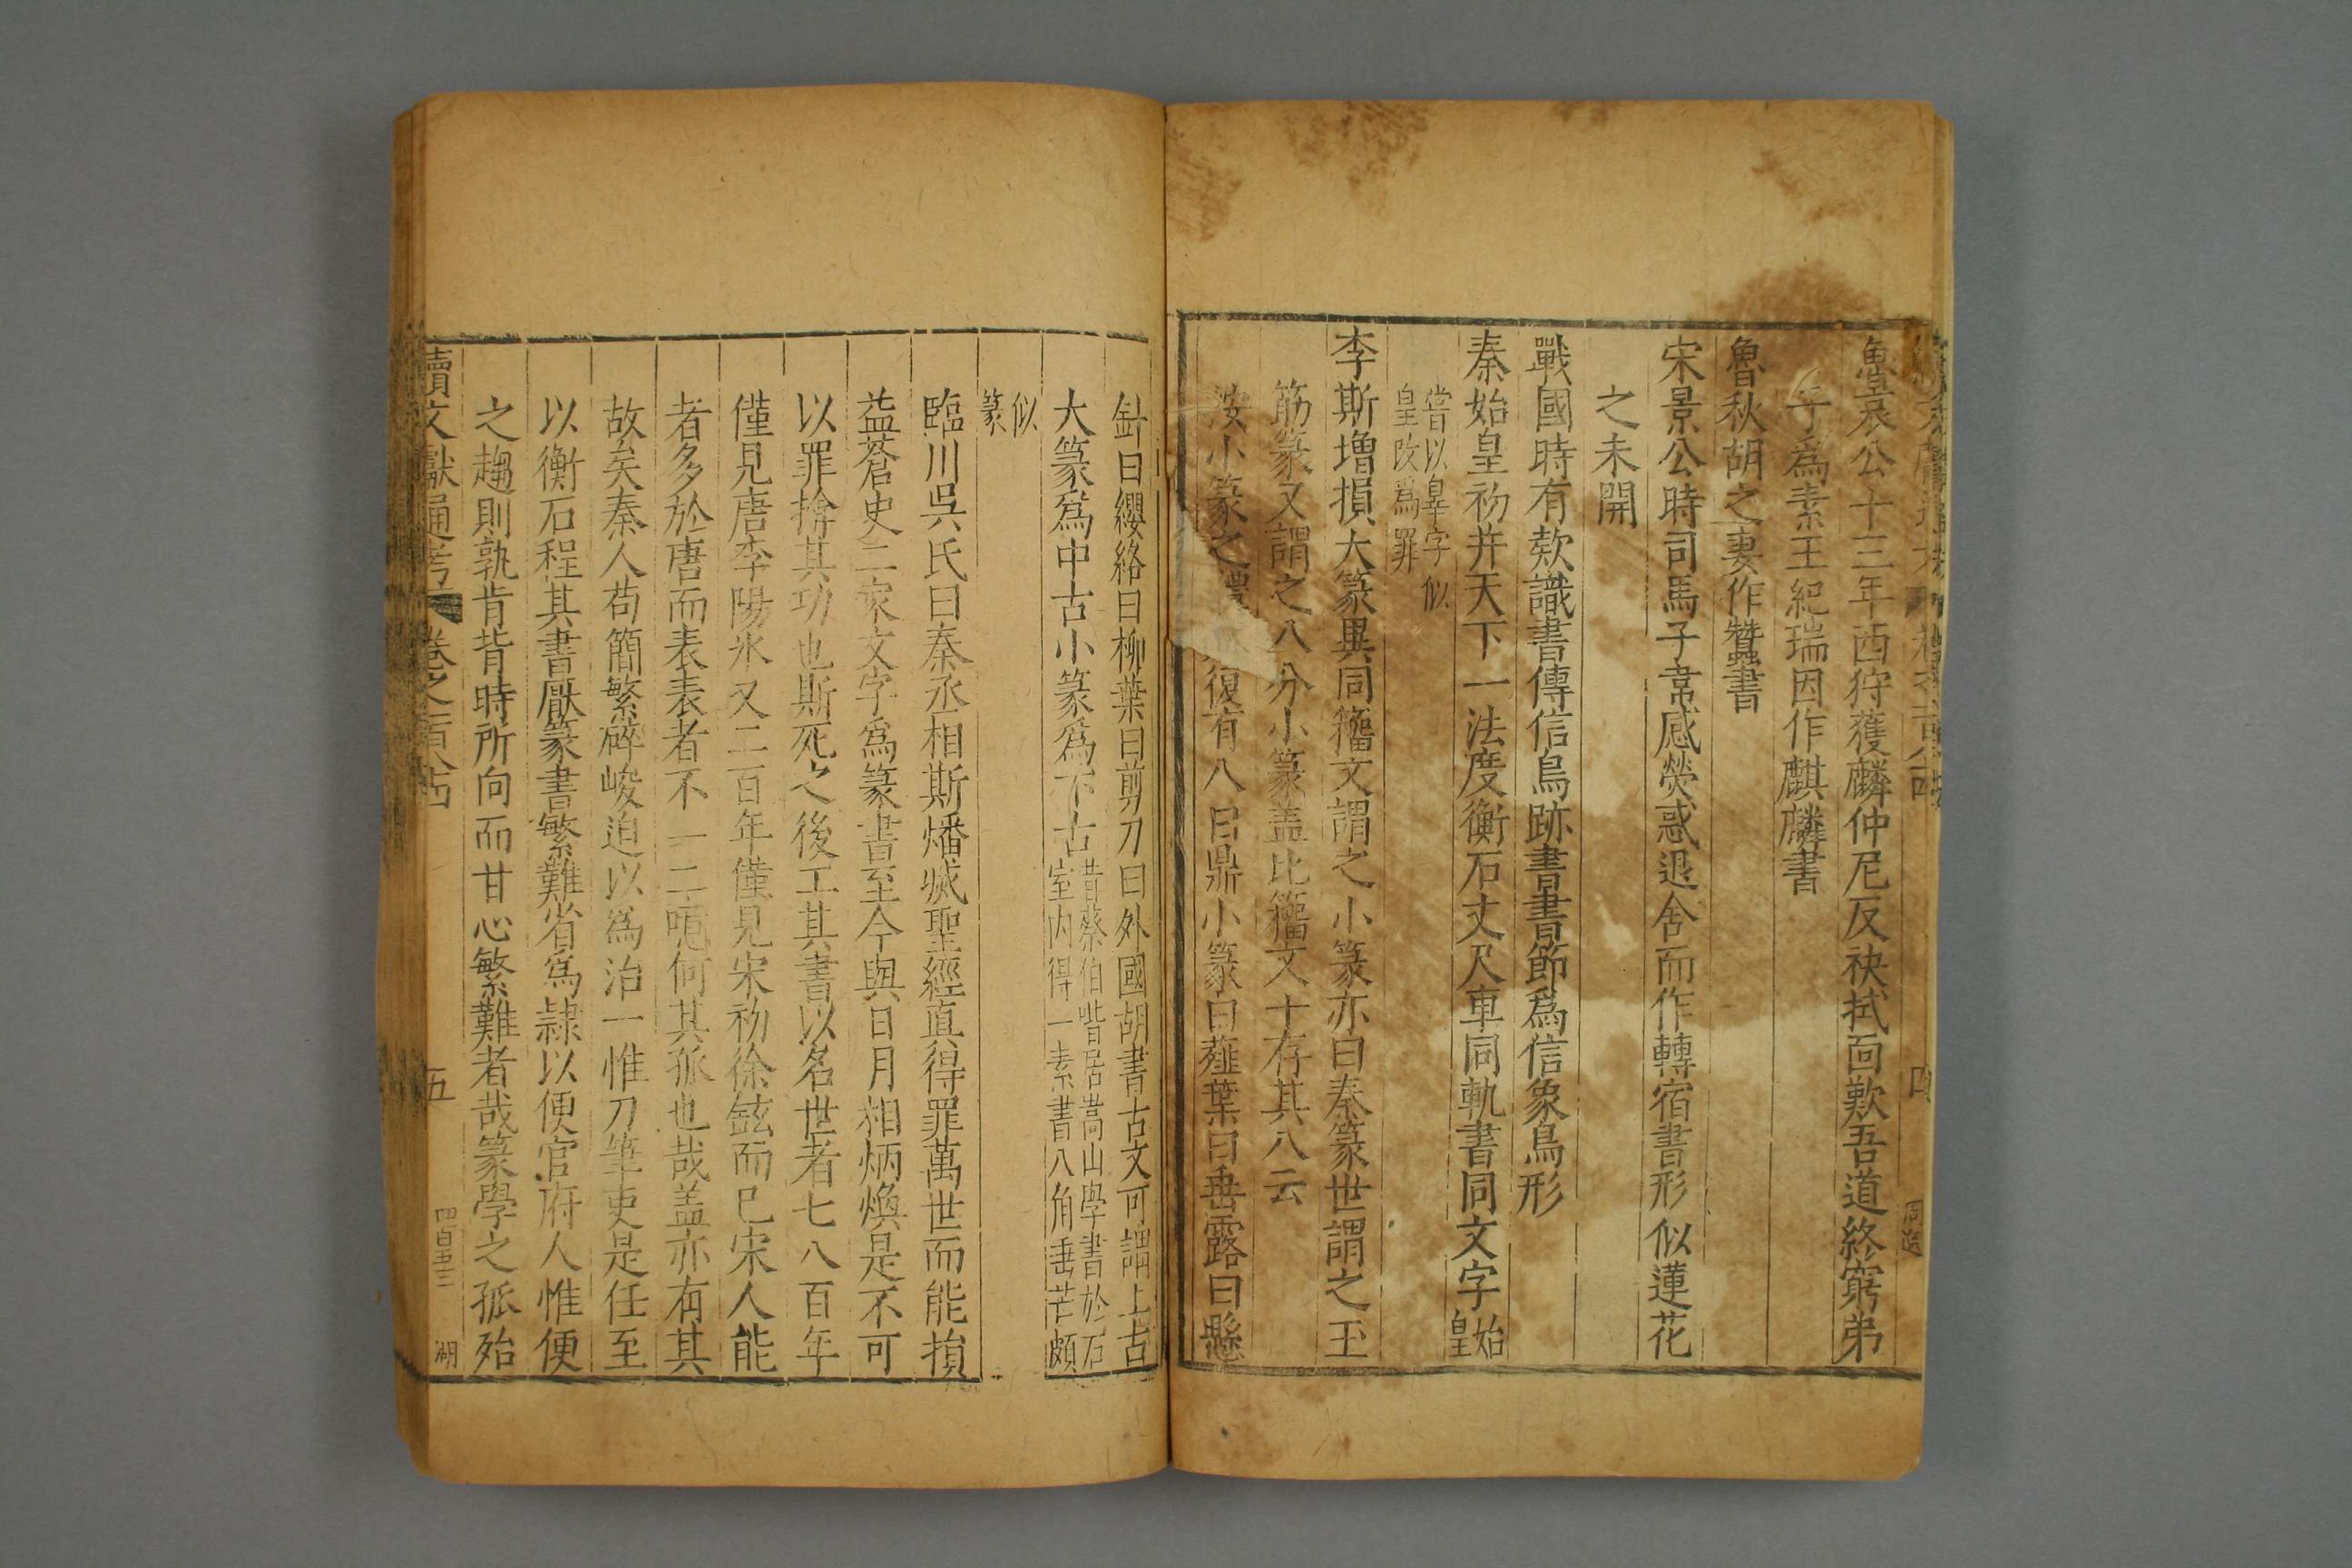 魯哀公十三年西狩獲麟仲尼反袂拭面歎吾道終窮弟
子為素王紀瑞因作麒麟書
魯秋胡之妻作蠶書
宋景公時司馬子韋感熒惑退舍而作轉宿書形似蓮花
之未開
戰國時有款識書傳信鳥跡書書節為信象鳥形
秦始皇初并天下一法度衡石丈尺車同軌書同文字始
皇
嘗以辠字似
皇改為罪
李斯增損大篆異同籀文謂之小篆亦曰秦篆世謂之玉
筋篆又謂之八分小篆盖比籀文十存其八云
按小篆之 復有八曰鼎小篆曰薤葉曰垂露曰懸
針曰纓絡曰柳葉曰剪刀曰外國胡書古文可謂上古
大篆為中古小篆為下古
昔蔡伯喈居嵩山學書於石
室内得一素書八角垂芒頗
似
篆
臨川吳氏曰秦丞相斯燔㓕聖經直得罪萬世而能損
益蒼史二家文字為篆書至今與日月相炳煥是不可
以罪揜其功也斯死之後工其書以名世者七八百年
僅見唐李陽冰又二百年僅見宋初徐鉉而已宋人能
者多於唐而表表者不一二噫何其孤也哉盖亦有其
故矣秦人苟簡繁碎峻迫以為治一惟刀筆吏是任至
以衡石程其書厭篆書繁難省為隷以便官府人惟便
之趨則孰肯背時所向而甘心繁難者哉篆學之孤殆
續文獻通考 卷之一百八十四
五
四百五三
湖